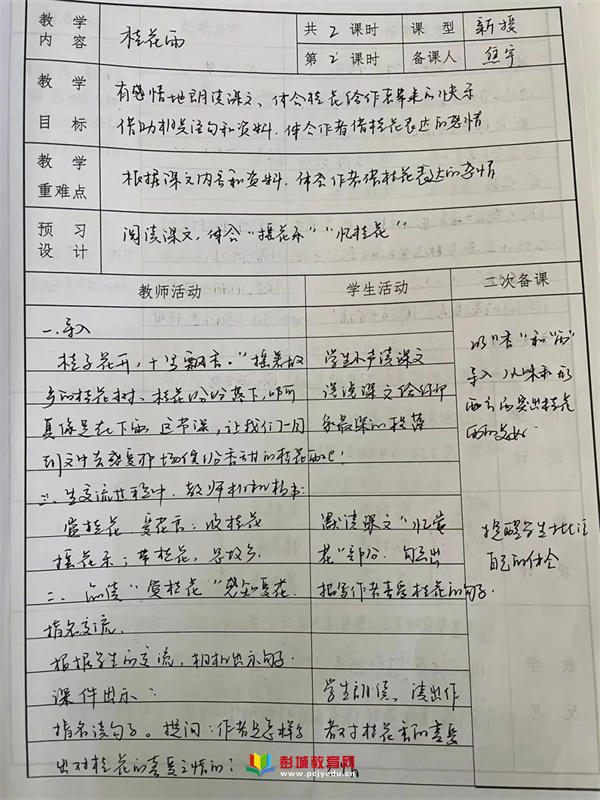 教学内容 桂花雨 共2课时 课型 新授
第2课时 备课人 熊宇
教学目标 有感情地朗读课文、体会桂花给作者带来的快乐
借助相关语句和资料,体会作者借桂花表达的感情
教学重难点 根据课文内容和资料,体会作者借桂花表达的感情
预习设计 阅读课文,体会“摇花乐”“忆桂花”
教师活动 学生活动 二次备课
一.导入
桂子花开,十里飘香。“摇着故 学生小声读课文
乡的桂花树、桂花纷纷落下,啊 说说课文给你印 以“香”和“雨”
真像是在下雨 这节课,让我们一同 象最深的段落 导入
到文中去感受那场缤纷香甜的桂花雨吧!
二.生交流过程中,教师相机板书:
赏桂花 爱花香:收桂花 默读课文“忆赏 提醒学生批注
摇花乐:带桂花,思故乡. 花”部分. 勾画出 自己的体会
三、品读“赏桂花”感知爱花 描写作者喜爱桂花的句子.
指名交流.
根据学生的交流,相机出示句子.
课件出示: 学生朗读、读出作
指名读句子。提问:作者是怎样写 者对桂花香的喜爱
出对桂花的喜爱之情的:
彭城教育网
www.pcjyedu.cn